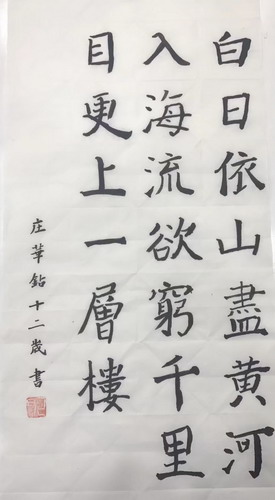 白日依山盡黄河
入海流欲窮千里
目更上一層樓
庄華鉆十二歲書